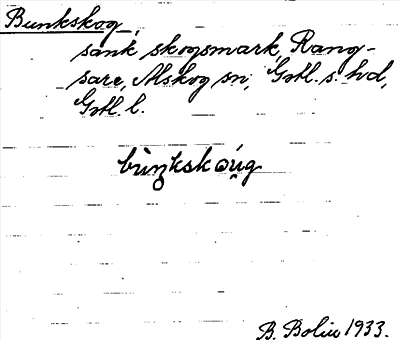 Bunkskog,
sank skogsmark, Rang-
sare, Alskog sn, Gotl. s. hd,
Gotl. l.
bùn̥kskoúg
B. Bolin 1933.